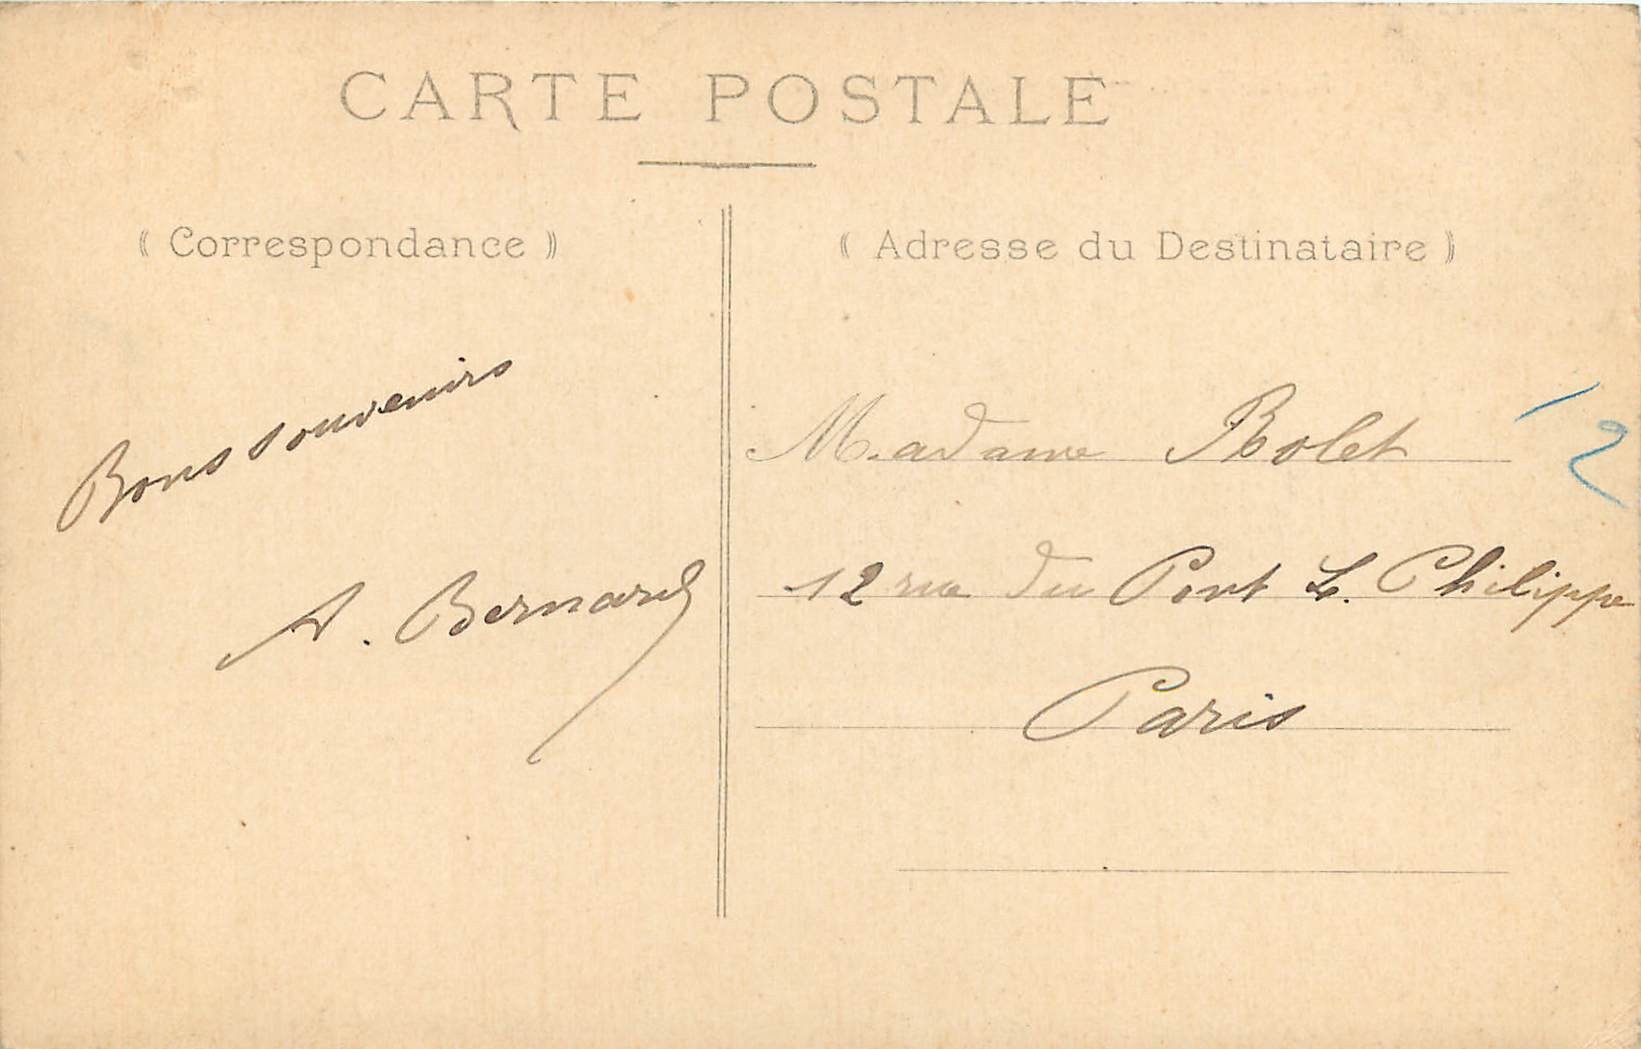 CARTE POSTALE
(( Correspondance ))
(( Adresse du Destinataire ))
Bons souvenirs
A. Bernard
Madame Bolet
12 rue du Pont L. Philippe
Paris
12